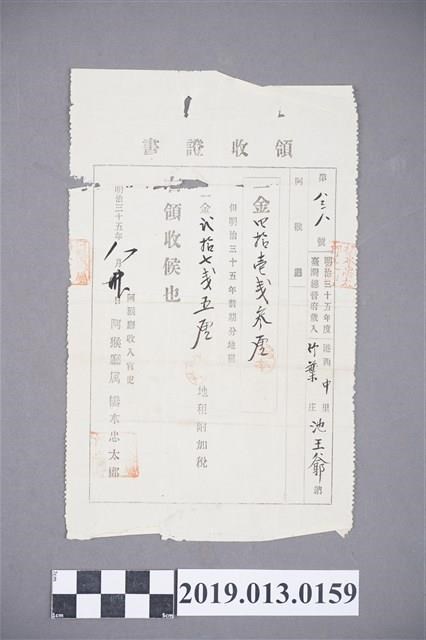 領收證書
第 八三八 號
明治三十五年度
臺灣總督府歲入
港西中里
竹葉庄
池王爺 納
阿猴廳
一金四拾壱戔参厘
但明治三十五年前期分地租
一金弍拾七戔五厘
地租附加稅
領收候也
明治三十五年八月
阿猴廳收入官吏
阿猴廳属 水忠太郎
1cm
5cm
2019.013.0159